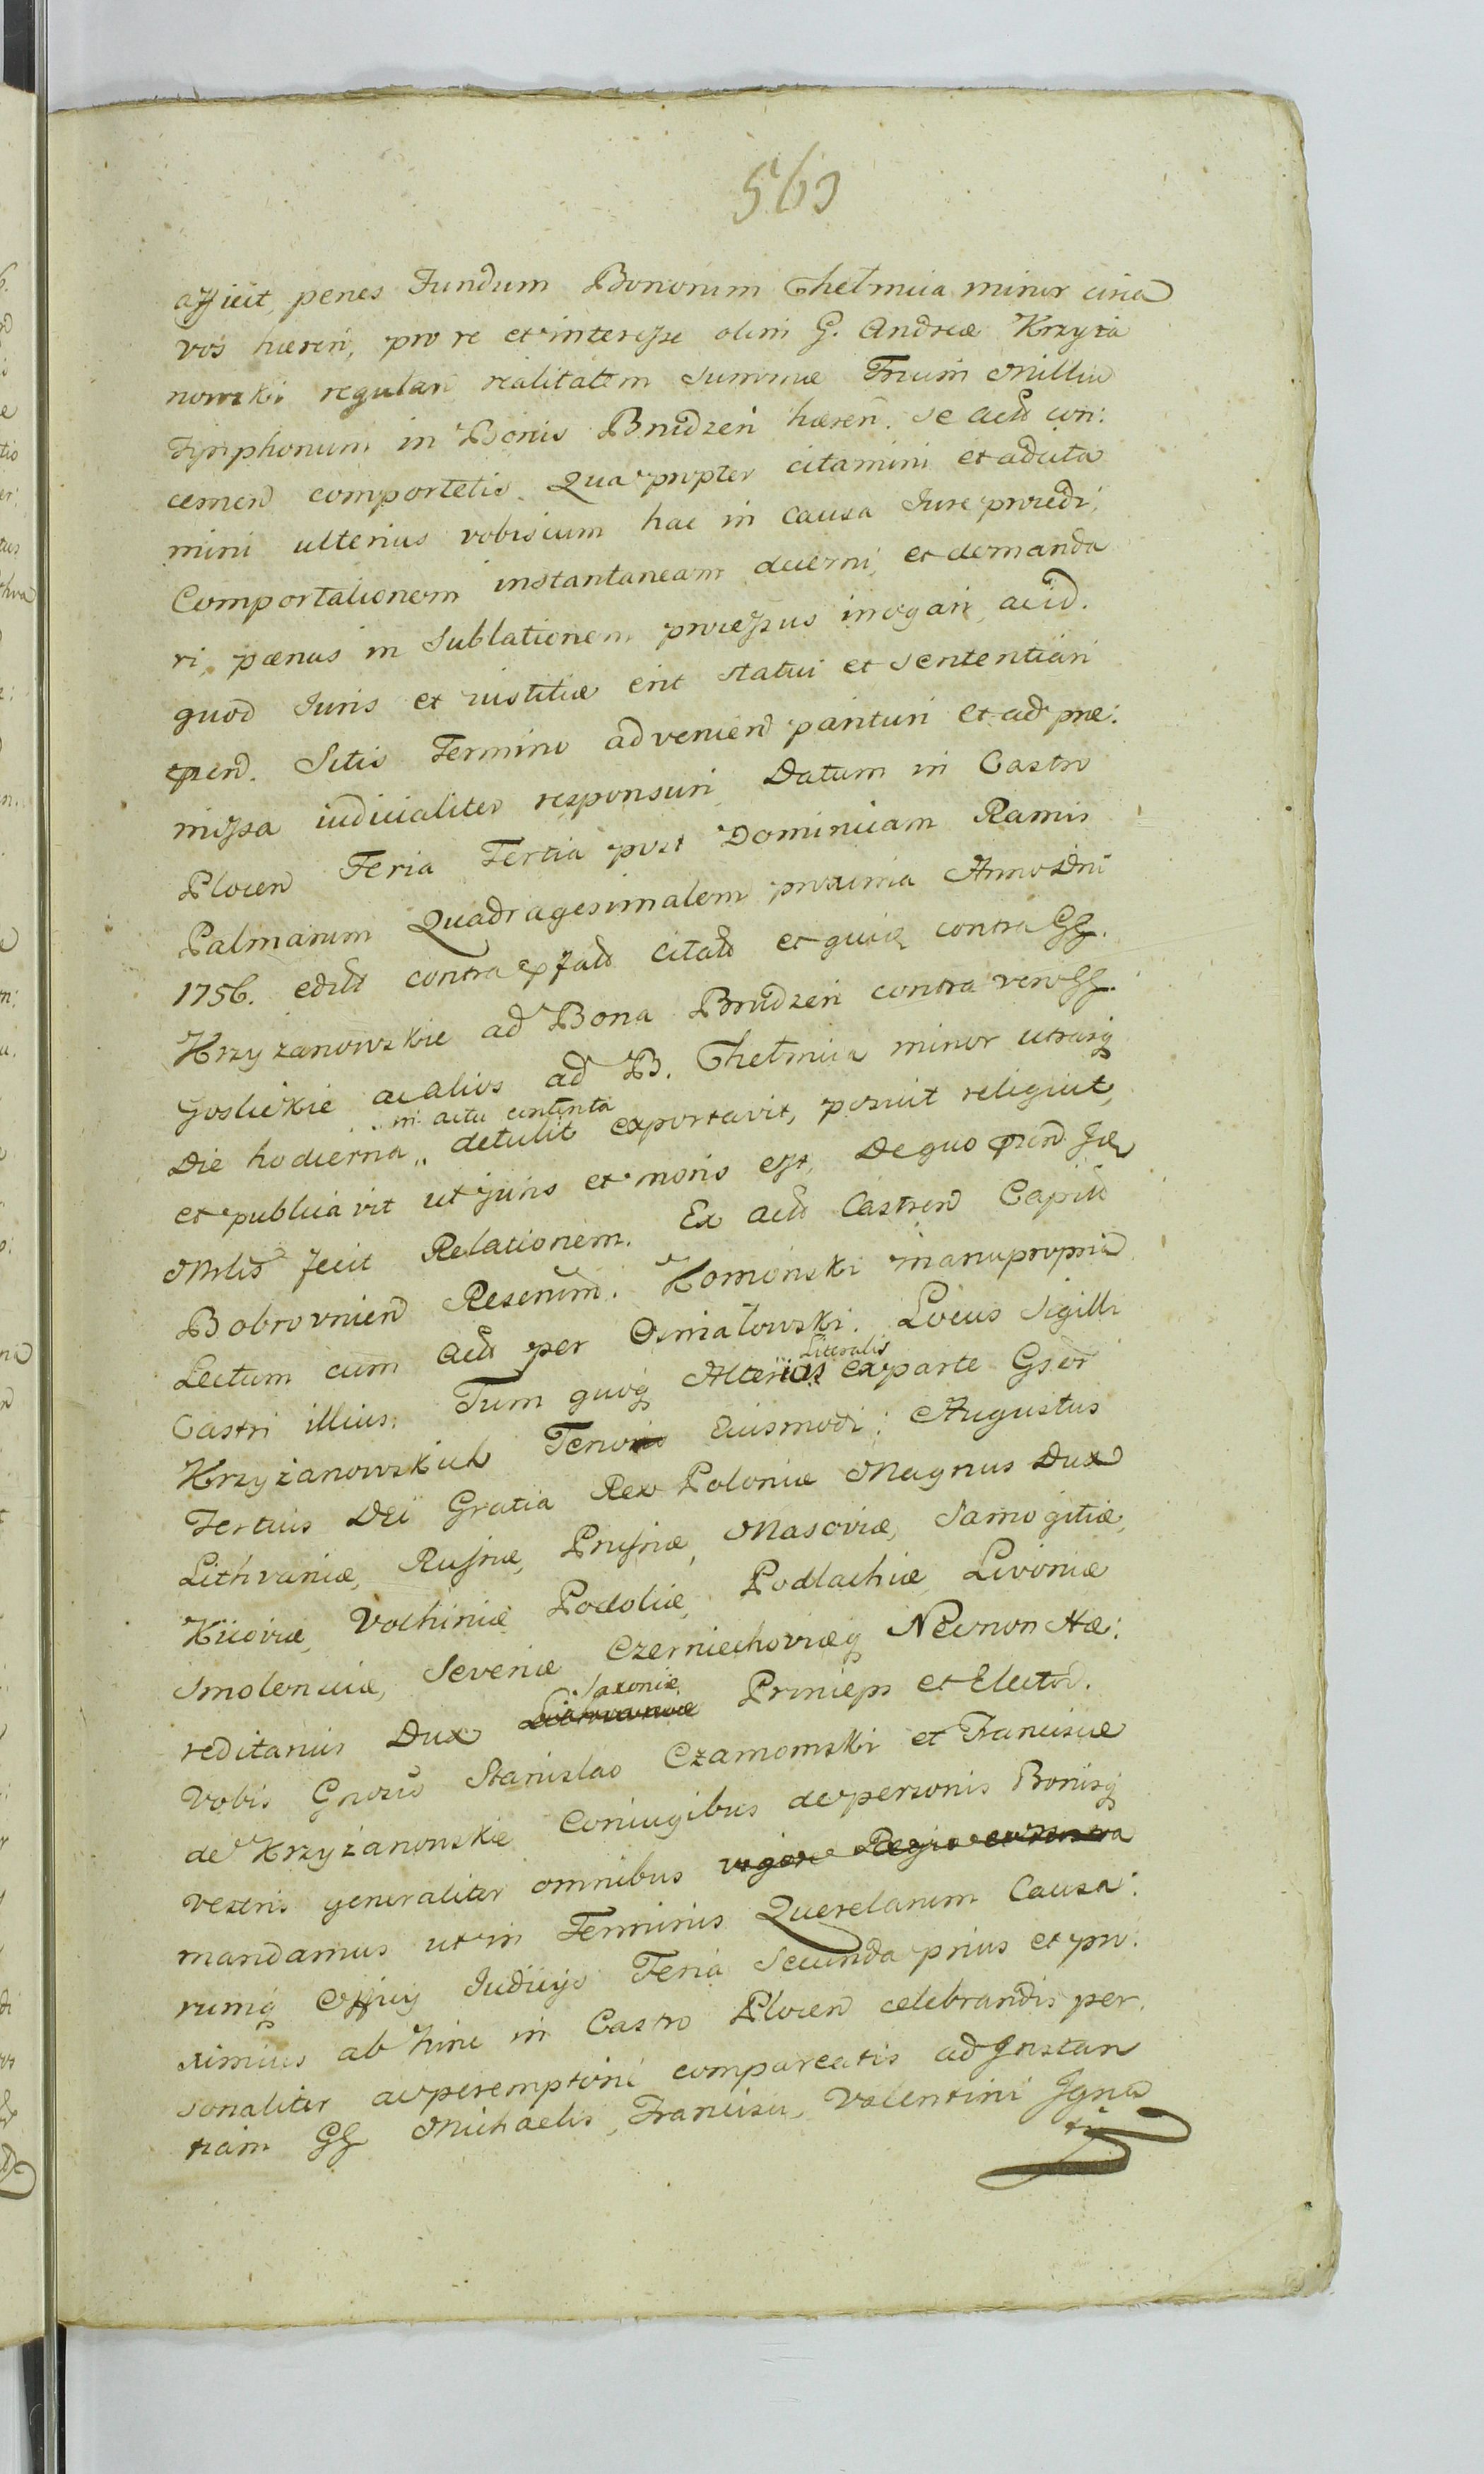 563
afficit, penes Fundum Bonorum Chelmica minor circa
vos hæren, pro re et interesse olim G. Andreæ Krzyża
nowski regulari realitatem summæ Trium Milliu
Tynphonum in Bonis Brudzeń hæren. se actu con:
cernen comportetis. Qua propter citamini et adcita
mini ulterius vobiscum hac in causa Jure procedi,
Comportationem instantaneam decerni, et demanda
ri, pœnas in sublationem processus irrogari, acid.
quod Juris et iustitiæ erit statui et sententiari
præn. Sitis Termino ad venien parituri et ad præ:
missa iudicialiter responsuri, Datum in Castro
Plocen Feria Tertia post Dominicam Ramis
Palmarum Quadragesimalem proxima Anno Dni
1756. edit contra citat et quidẽ contra GG.
Krzyżanowskie ad Bona Brudzeń contra vero GG.
Goslickie ac alios ad B. Chelmica minor utrasq
in actu contenta
Die hodierna,, detulit exportavit, posuit reliquit,
et publicavit ut juris et moris est, De quo præn Jæ
Mnlis fecit Relationem. Ex actis Castren Capit
Bobrovnien Rescrium. Komoński manu propria
Lectum cum actis per Osmiałowski. Locus Sigilli
Literalis
Castri illius. Tum quoq Alterius ex parte Gsor
Krzyżanowskich Tenoris Eiusmodi: Augustus
Tertius Dei Gratia Rex Poloniæ Magnus Dux
Lithvaniæ, Russiæ, Prussiæ, Masoviæ, Samogitiæ,
Kiioviæ, Volhiniæ Podoliæ, Podlachiæ Livoniæ
Smolenciæ, Severiæ Czerniechoviæq Necnon Hæ:
Saxoniæ
reditarius Dux Princips et Elector.
Vobis Gnosis Stanislao Czamomski et Franciscæ
de Krzyżanowskie Coniugibus de personis Bonisq
vestris generaliter omnibus
mandamus ut in Terminis Querelarum Causa:
rumq Officij Judicijs Feria Secunda prius et pro:
ximius ab hinc in Castro Plocen celebrandis per:
sonaliter ac peremptorie compareatis ad Jnstan
tiam GG Michaelis, Francisci, Valentini Jgna
tij